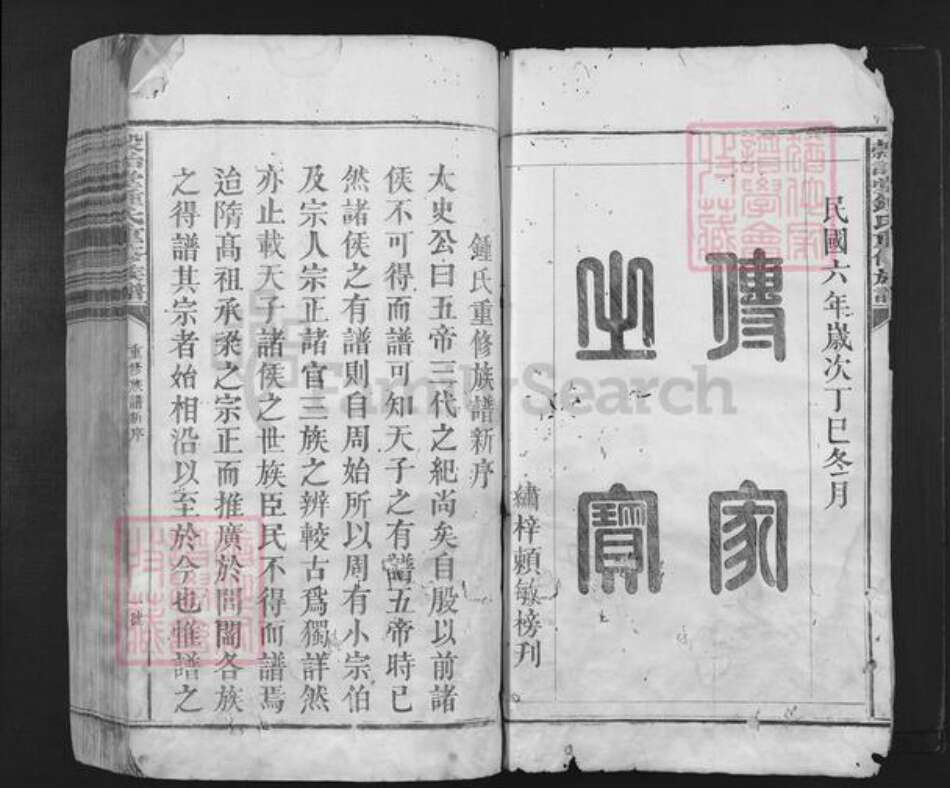 民國六年歲次丁巳冬月
傳家
之寶
繡梓賴敏榜刊
鍾氏重修族譜新序
太史公曰五帝三代之紀尚矣自殷以前諸
侯不可得而譜可知天子之有譜五帝時已
然諸侯之有譜則自周始所以周有小宗伯
及宗人宗正諸官三族之辨較古爲獨詳然
亦止載天子諸侯之世族臣民不得而譜焉
迨隋髙祖承梁之宗正而推廣於閭閻各族
之得譜其宗者始相沿以至於今也惟譜之
重修族譜新序
FamilySearch